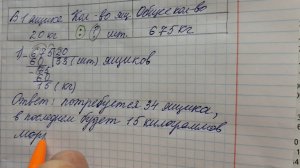 В 1 ящике Кол-во ящ. Общее кол-во
20 кг ? шт. 675 кг
1) 675 20
60 33 (шт) ящиков
75
60
15 (кг)
Ответ: потребуется 34 ящика,
в последнем будет 15 килограммов
морк